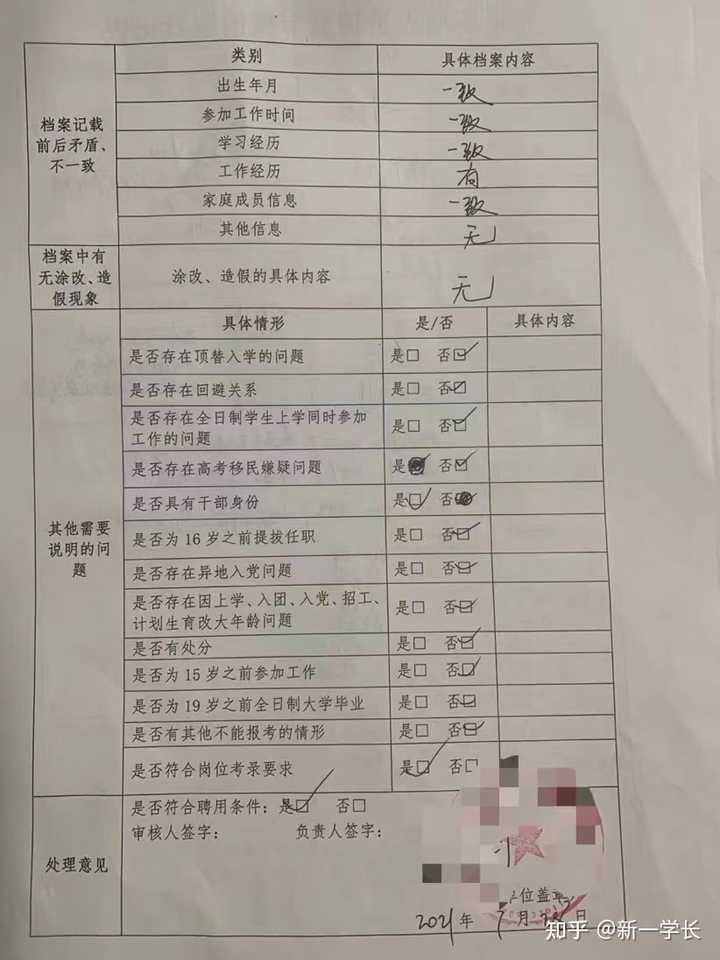 类别 具体档案内容
档案记载前后矛盾、不一致
出生年月 一致
参加工作时间 一致
学习经历 一致
工作经历 有
家庭成员信息 一致
其他信息 无
档案中有无涂改、造假现象
涂改、造假的具体内容 无
其他需要说明的问题
具体情形 是/否 具体内容
是否存在顶替入学的问题 是□ 否☑
是否存在回避关系 是□ 否☑
是否存在全日制学生上学同时参加
工作的问题 是□ 否☑
是否存在高考移民嫌疑问题 是■ 否☑
是否具有干部身份 是☑ 否■
是否为16岁之前提拔任职 是□ 否☑
是否存在异地入党问题 是□ 否☑
是否存在因上学、入团、入党、招工、
计划生育改大年龄问题 是□ 否☑
是否有处分 是□ 否☑
是否为15岁之前参加工作 是□ 否☑
是否为19岁之前全日制大学毕业 是□ 否☑
是否有其他不能报考的情形 是□ 否☑
是否符合岗位考录要求 是☑ 否□
处理意见
是否符合聘用条件：是☑ 否□
审核人签字： 负责人签字：
位盖
2021年 月 日
知乎 @新一学长